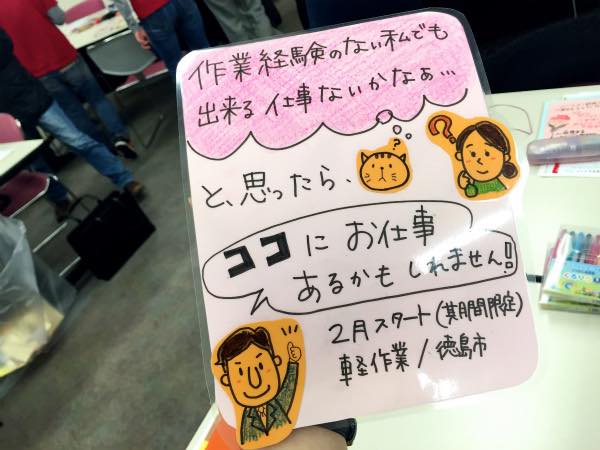 作業経験のない私でも
出来る仕事ないかなぁ…
?
?
と、思ったら、
ココにお仕事
あるかもしれません!!
2月スタート(期間限定)
軽作業/徳島市